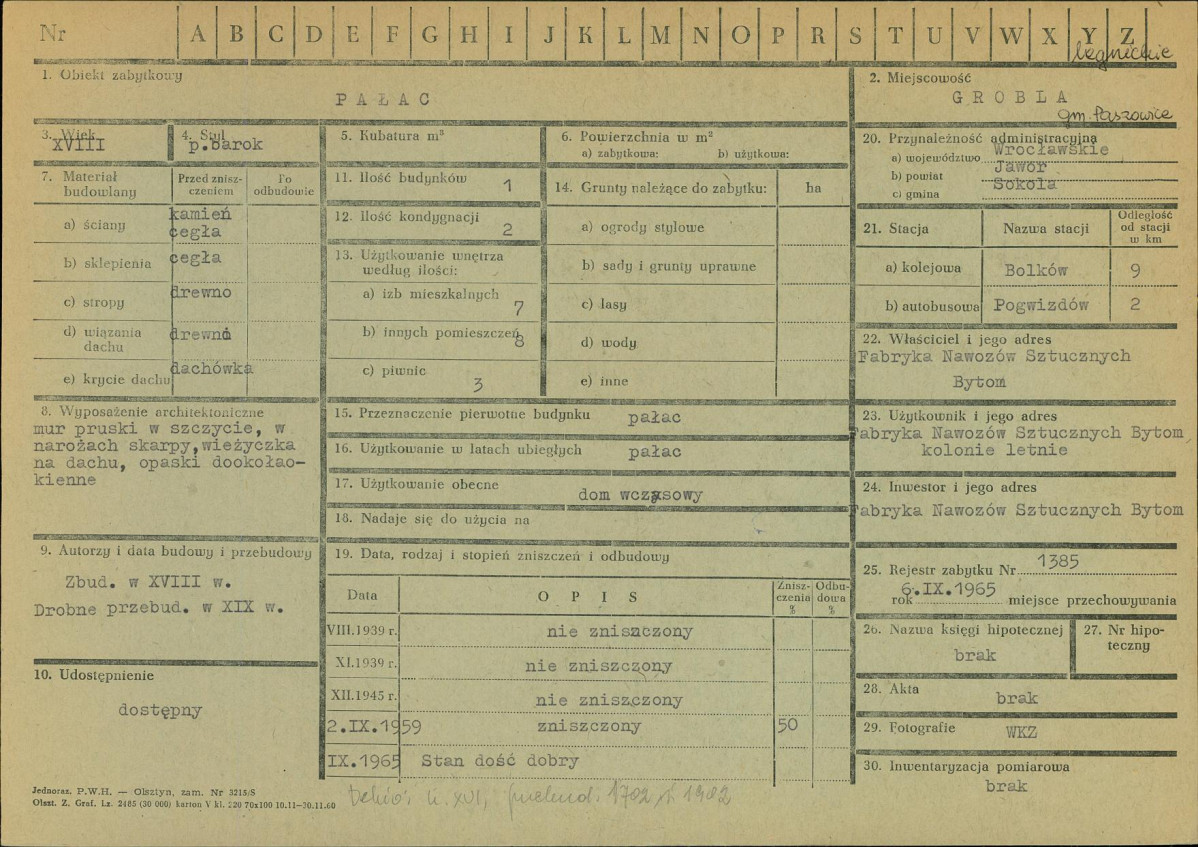 Nr A B C D E F G H I J K L M N O P R S T U V W X Y Z
legnickie
1. Obiekt zabytkowy
PAŁAC
2. Miejscowość
GROBLA
gm. Paszowice
3. Wiek
XVIII
4. Styl
p.barok
5. Kubatura m³
6. Powierzchnia w m²
a) zabytkowa: b) użytkowa:
7. Materiał budowlany
Przed znisz-
czeniem
Po
odbudowie
a) ściany
kamień
cegła
b) sklepienia
cegła
c) stropy
drewno
d) wiązania
dachu
drewno
e) krycie dachu
dachówka
8. Wyposażenie architektoniczne
mur pruski w szczycie, w
narożach skarpy,wieżyczka
na dachu, opaski dookołao-
kienne
9. Autorzy i data budowy i przebudowy
Zbud. w XVIII w.
Drobne przebud. w XIX w.
10. Udostępnienie
dostępny
11. Ilość budynków
1
12. Ilość kondygnacji
2
13. Użytkowanie wnętrza
według ilości:
a) izb mieszkalnych
7
b) innych pomieszczeń
8
c) piwnic
3
14. Grunty należące do zabytku: ha
a) ogrody stylowe
b) sady i grunty uprawne
c) lasy
d) wody
e) inne
15. Przeznaczenie pierwotne budynku pałac
16. Użytkowanie w latach ubiegłych pałac
17. Użytkowanie obecne
dom wczasowy
18. Nadaje się do użycia na
19. Data, rodzaj i stopień zniszczeń i odbudowy
Data
OPIS
Znisz-
czenia
%
Odbu-
dowa
%
VIII.1939 r. nie zniszczony
XI.1939 r. nie zniszczony
XII.1945 r. nie zniszczony
2.IX.1959 zniszczony 50
IX.1965 Stan dość dobry
20. Przynależność administracyjna
a) województwo Wrocławskie
b) powiat Jawor
c) gmina Sokola
21. Stacja
Nazwa stacji
Odległość
od stacji
w km
a) kolejowa Bolków 9
b) autobusowa Pogwizdów 2
22. Właściciel i jego adres
Fabryka Nawozów Sztucznych
Bytom
23. Użytkownik i jego adres
Fabryka Nawozów Sztucznych Bytom
kolonie letnie
24. Inwestor i jego adres
Fabryka Nawozów Sztucznych Bytom
25. Rejestr zabytku Nr 1385
rok 6.IX.1965 miejsce przechowywania
26. Nazwa księgi hipotecznej
brak
27. Nr hipo-
teczny
28. Akta
brak
29. Fotografie
WKZ
30. Inwentaryzacja pomiarowa
brak
Jednoraz. P.W.H. — Olsztyn, zam. Nr 3215/S
Olszt. Z. Graf. Lz. 2485 (30 000) karton V kl. 220 70x100 10.11—30.11.60
Dehio: XVI, 1702 1902